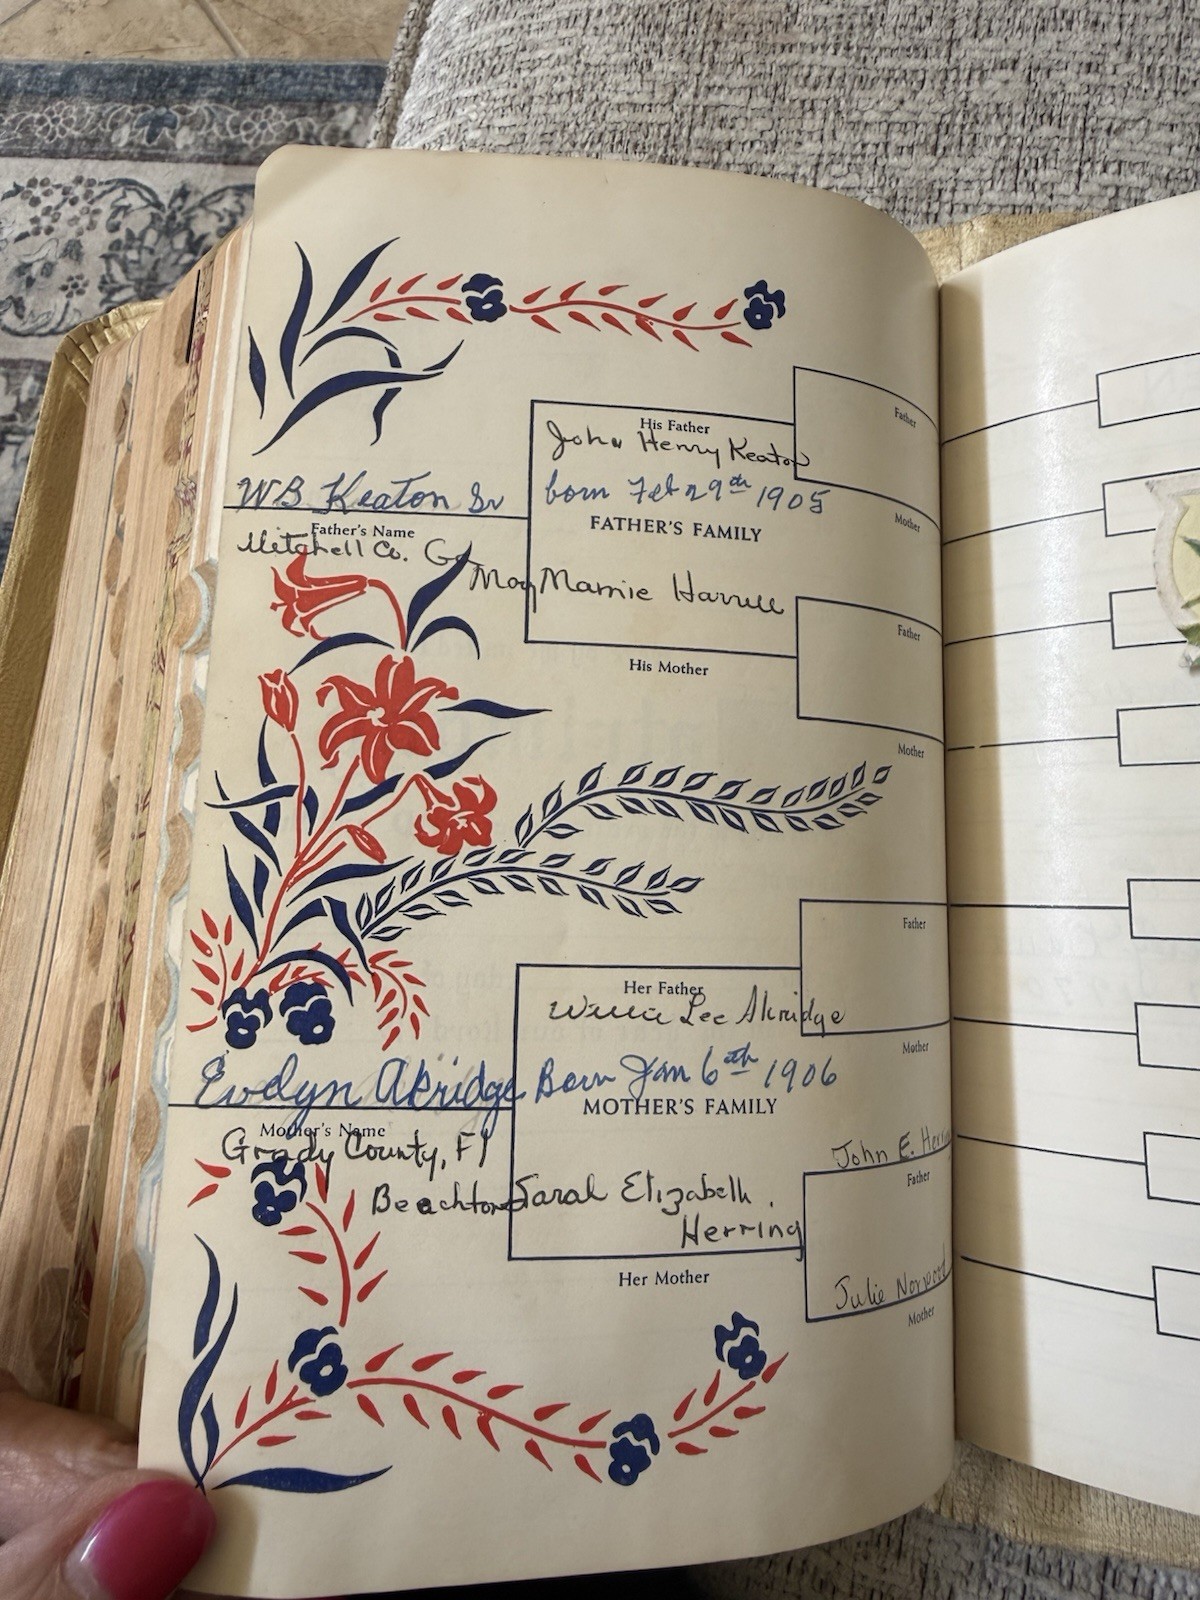 Father
His Father
John Henry Keaton
WB Keaton Sr
born Feb 29th 1905
Mother
Father's Name
FATHER'S FAMILY
Mitchell Co. Ga
May Mamie Harrell
Father
His Mother
Mother
Father
Her Father
Willie Lee Akridge
Mother
Evelyn Akridge Born Jan 6th 1906
MOTHER'S FAMILY
Mother's Name
Grady County, Fl
John E. Herring
Father
Beachton
Sarah Elizabeth
Herring
Her Mother
Julie Norwood
Mother